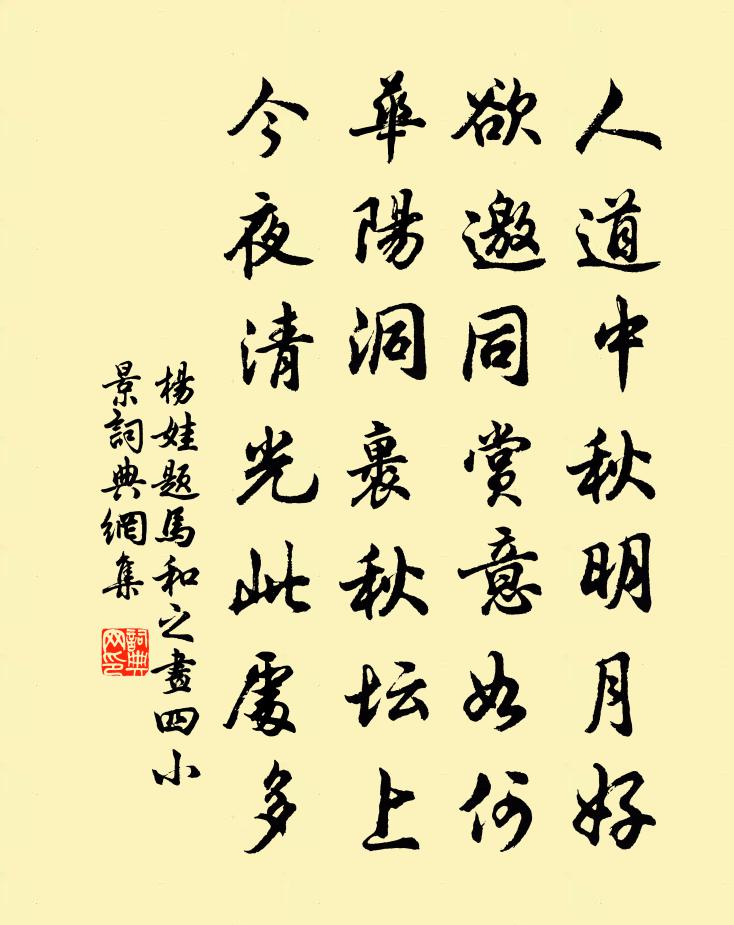 人道中秋明月好
欲邀同賞意如何
華陽洞裏秋坛上
今夜清光此處多
楊娃題馬和之畫四小
景詞典網集
詞典
网印